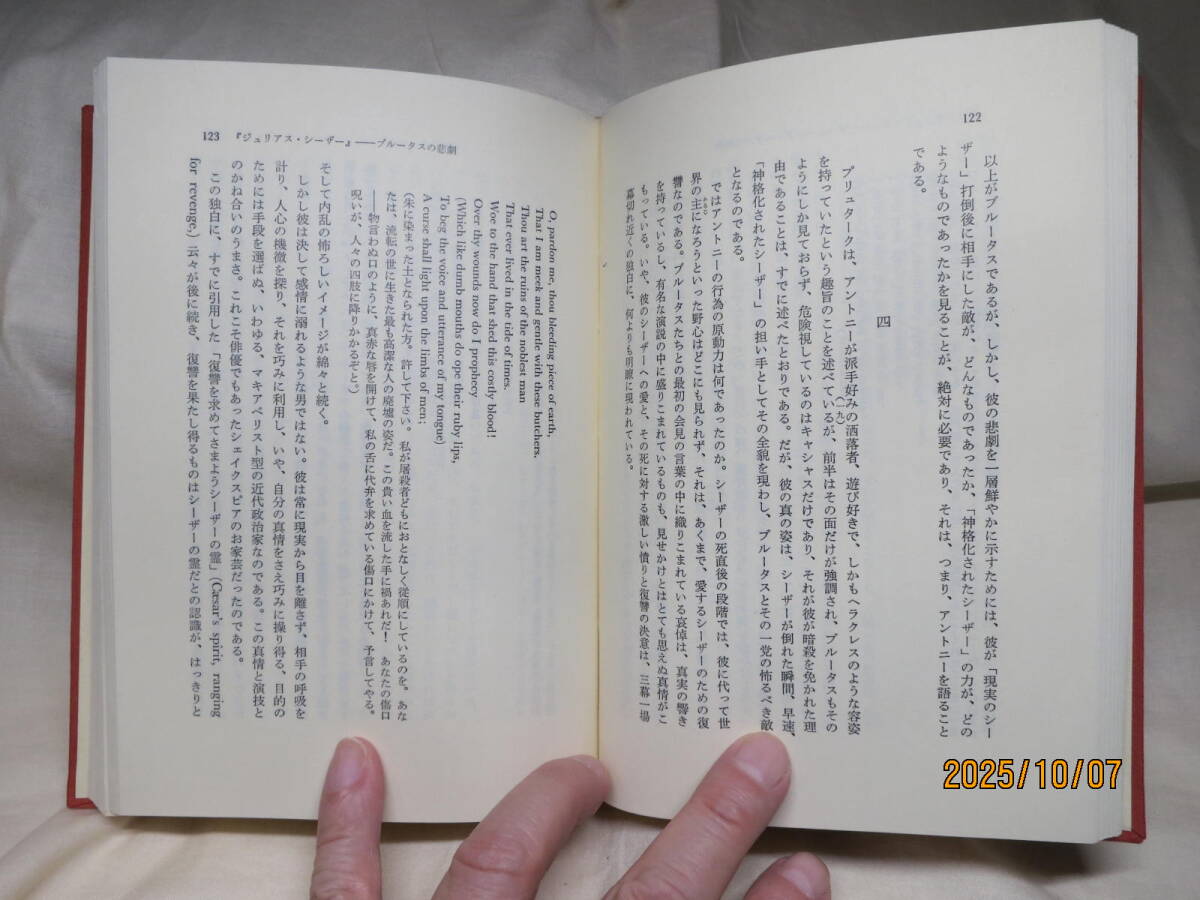 122
以上がブルータスであるが、しかし、彼の悲劇を一層鮮やかに示すためには、彼が「現実のシー
ザー」打倒後に相手にした敵が、どんなものであったか、「神格化されたシーザー」の力が、どの
ようなものであったかを見ることが、絶対に必要であり、それは、つまり、アントニーを語ること
である。
四
プリュタークは、アントニーが派手好みの洒落者、遊び好きで、しかもヘラクレスのような容姿
を持っていたという趣旨のことを述べているが、(一九)前半はその面だけが強調され、ブルータスもその
ようにしか見ておらず、危険視しているのはキャシャスだけであり、それが彼が暗殺を免かれた理
由であることは、すでに述べたとおりである。だが、彼の真の姿は、シーザーが倒れた瞬間、早速、
「神格化されたシーザー」の担い手としてその全貌を現わし、ブルータスとその一党の怖るべき敵
となるのである。
ではアントニーの行為の原動力は何であったのか。シーザーの死直後の段階では、彼に代って世
界の主になろうといった野心はどこにも見られず、それは、あくまで、愛するシーザーのための復
讐なのである。ブルータスたちとの最初の会見の言葉の中に織りこまれている哀悼は、真実の響き
を持っているし、有名な演説の中に盛りこまれているものも、見せかけとはとても思えぬ真情がこ
もっている。いや、彼のシーザーへの愛と、その死に対する激しい憤りと復讐の決意は、三幕一場
幕切れ近くの独白に、何よりも明瞭に現われている。
123 『ジュリアス・シーザー』――ブルータスの悲劇
O, pardon me, thou bleeding piece of earth,
That I am meek and gentle with these butchers.
Thou art the ruins of the noblest man
That ever lived in the tide of times.
Woe to the hand that shed this costly blood!
Over thy wounds now do I prophecy
(Which like dumb mouths do ope their ruby lips,
To beg the voice and utterance of my tongue)
A curse shall light upon the limbs of men;
(朱に染まった土となられた方。許して下さい。私が屠殺者どもにおとなしく従順にしているのを。あな
たは、流転の世に生きた最も高潔な人の廃墟の姿だ。この貴い血を流した手に禍あれだ! あなたの傷口
――物言わぬ口のように、真赤な唇を開けて、私の舌に代弁を求めている傷口にかけて、予言してやる。
呪いが、人々の四肢に降りかかるぞと。)
そして内乱の怖ろしいイメージが綿々と続く。
しかし彼は決して感情に溺れるような男ではない。彼は常に現実から目を離さず、相手の呼吸を
計り、人心の機微を探り、それを巧みに利用し、いや、自分の真情をさえ巧みに操り得る、目的の
ためには手段を選ばぬ、いわゆる、マキアベリスト型の近代政治家なのである。この真情と演技と
のかね合いのうまさ。これこそ俳優でもあったシェイクスピアのお家芸だったのである。
この独白に、すでに引用した「復讐を求めてさまようシーザーの霊」(Cæsar's spirit, ranging
for revenge,) 云々が後に続き、復讐を果たし得るものはシーザーの霊だとの認識が、はっきりと
2025/10/07